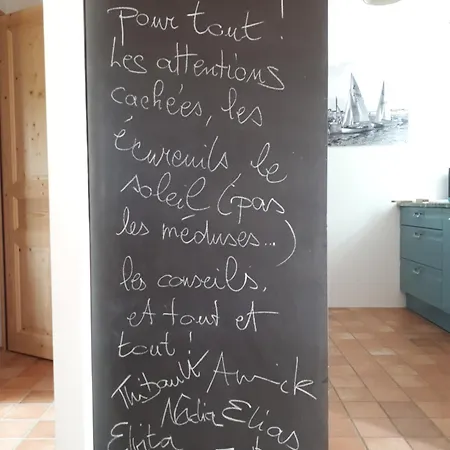 pour tout !
Les attentions
cachées, les
écureuils, le
soleil (pas
les méduses...)
les conseils,
et tout et
tout !
Thibault Annick
Nadia Elias